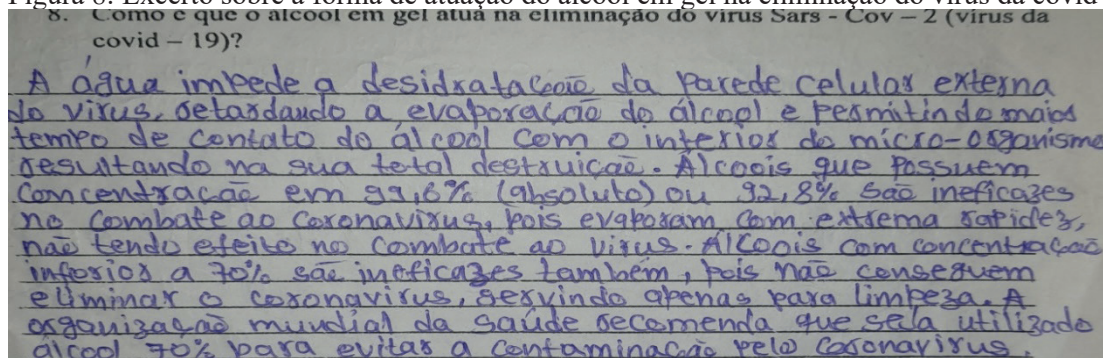 8. Como é que o álcool em gel atua na eliminação do vírus Sars - Cov – 2 (vírus da
covid – 19)?
A água impede a desidratação da parede celular externa
do vírus, retardando a evaporação do álcool e permitindo maior
tempo de contato do álcool com o interior do micro-organismo
resultando na sua total destruição. Álcoois que possuem
concentração em 99,6% (absoluto) ou 92,8% são ineficazes
no combate ao coronavírus, pois evaporam com extrema rapidez,
não tendo efeito no combate ao vírus. Alcoois com concentração
inferior a 70% são ineficazes também, pois não conseguem
eliminar o coronavírus, servindo apenas para limpeza. A
organização mundial da saúde recomenda que seja utilizado
álcool 70% para evitar a contaminação pelo coronavírus.